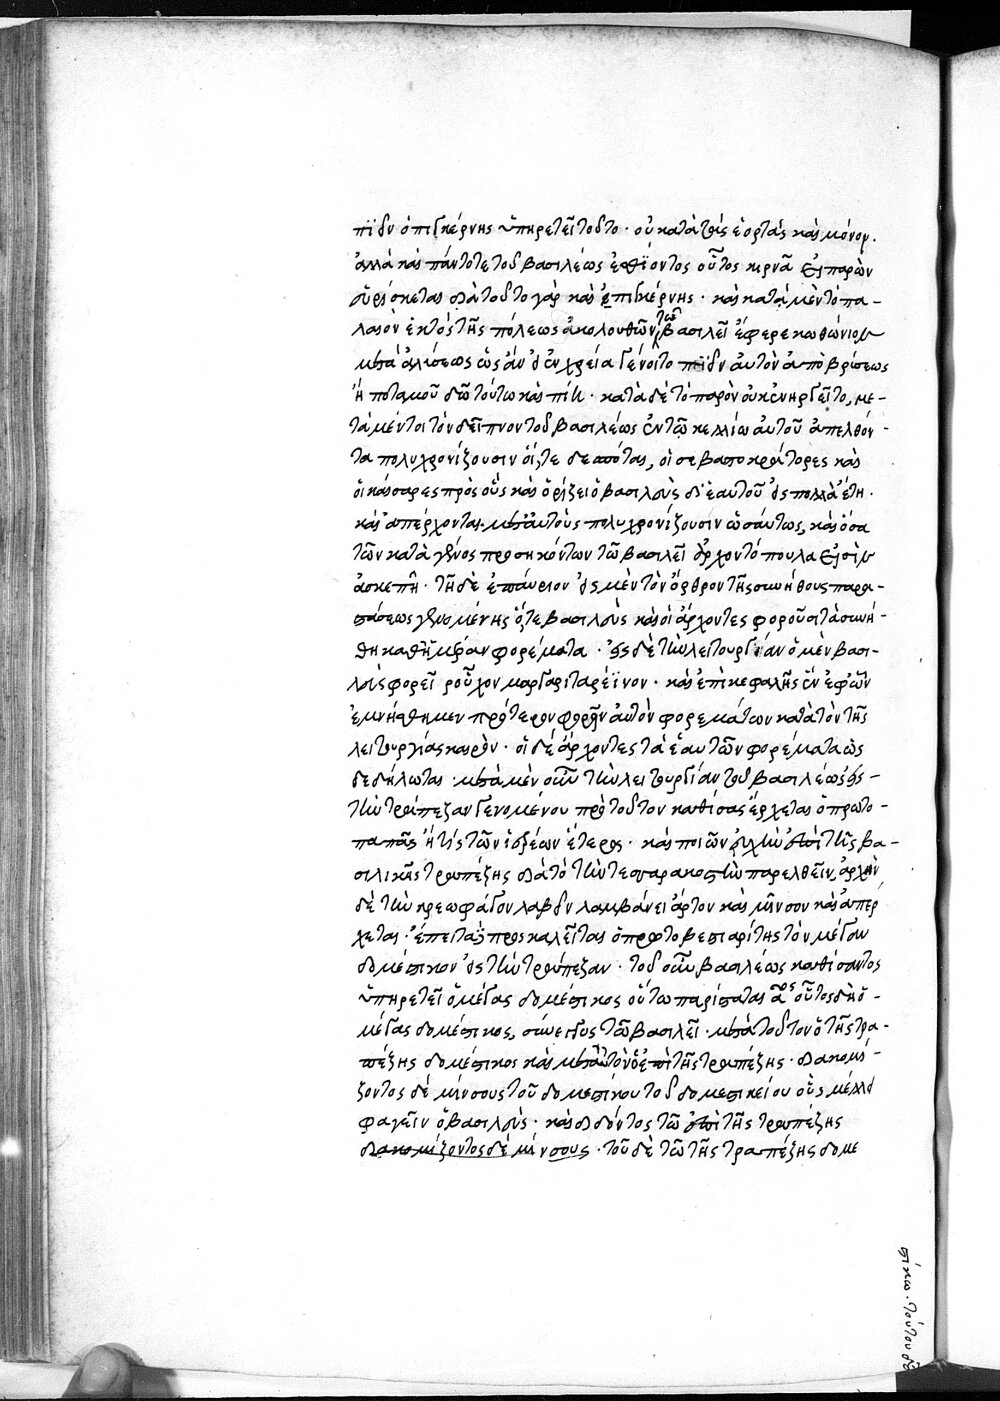 πϊεῖν ὁ πιγκέρνης ὑπηρετεῖ τοῦτο· οὐ κατὰ τὰς ἑορτὰς καὶ μόνον.
ἀλλὰ καὶ πάντοτε τοῦ βασιλέως ἐσθίοντος οὗτος κιρνᾶ εἰ παρὼν
εὑρίσκεται διὰ τοῦτο γὰρ καὶ ἐπιγκέρνης· καὶ κατὰ μὲν τὸ πα-
λαιὸν ἐκτὸς τῆς πόλεως ἀκολουθῶν τῶ βασιλεῖ ἔφερε κωθώνιον
μετὰ ἁλύσεως ὡς ἂν εἰ ἐν χρεία γένοιτο πϊεῖν αὐτὸν ἀπὸ βρύσεως
ἢ ποταμοῦ δῶ τούτω καὶ πίη· κατὰ δὲ τὸ παρὸν οὐκ ἐνηργεῖτο, με-
τὰ μέντοι τὸν δεῖπνον τοῦ βασιλέως ἐν τῶ κελλίω αὐτοῦ ἀπελθόν-
τα πολυχρονίζουσιν οἵ, τε δεσπόται, οἱ σεβαστοκράτορες καὶ
οἱ καίσαρες πρὸς οὓς καὶ ὁρίζει ὁ βασιλεὺς δι' ἑαυτοῦ εἰς πολλὰ ἔτη.
καὶ ἀπέρχονται. μετὰ αὐτοὺς πολυχρονίζουσιν ὡσαύτως, καὶ ὅσα
τῶν κατὰ γένος προσηκόντων τῶ βασιλεῖ ἀρχοντόπουλα εἰσὶν
ἀσκεπῆ· τῆ δὲ ἐπαύριον εἰς μὲν τὸν ὄρθρον τῆς συνήθους παρα-
στάσεως γενομένης ὅ, τε βασιλεὺς καὶ οἱ ἄρχοντες φοροῦσι τὰ συνή-
θη καθημέραν φορέματα· εἰς δὲ τὴν λειτουργίαν ὁ μὲν βασι-
λεὺς φορεῖ ροῦχον μαργαριταρέϊνον· καὶ ἐπὶ κεφαλῆς ἓν ἐφ' ὧν
ἐμνήσθημεν πρότερον φορεῖν αὐτὸν φορεμάτων κατὰ τὸν τῆς
λειτουργίας καιρὸν· οἱ δὲ ἄρχοντες τὰ ἑαυτῶν φορέματα ὡς
δεδήλωται· μετὰ μὲν οὖν τὴν λειτουργίαν τοῦ βασιλέως εἰς
τὴν τράπεζαν γενομένου πρὸ τοῦ τον καθίσαι ἔρχεται ὁ πρωτο-
παπᾶς ἤ τις τῶν ἱερέων ἕτερος· καὶ ποιῶν εὐχὴν ἐπὶ τῆς βα-
σιλικῆς τραπέζης διὰ τὸ τὴν τεσσαρακοστὴν παρελθεῖν, ἀρχὴν
δὲ τὴν κρεωφάγον λαβεῖν λαμβάνει ἄρτον καὶ μίνσον καὶ ἀπέρ
χεται· ἔπειτα προσκαλεῖται ὁ πρωτοβεστιαρίτης τὸν μέγαν
δομέστικον εἰς τὴν τράπεζαν· τοῦ οὖν βασιλέως καθίσαντος
ὑπηρετεῖ ὁ μέγας δομέστικος οὕτω παρίσταται αος οὗτος δὴ ὁ
μέγας δομέστικος, σύνεγγυς τῶ βασιλεῖ· μετὰ τοῦτον ὁ τῆς τρα-
πέζης δομέστικος καὶ μετ' αὐτὸν ὁ ἐπὶ τῆς τραπέζης· διακομί-
ζοντος δὲ μίνσους τοῦ δομεστίκου τοῦ δομεστικείου οὓς μέλλει
φαγεῖν ὁ βασιλεὺς· καὶ διδόντος τῶ ἐπὶ τῆς τραπέζης
διακομίζοντος δὲ μίνσους· τοῦ δὲ τῶ τῆς τραπέζης δομε
στίκω. τούτου δὲ